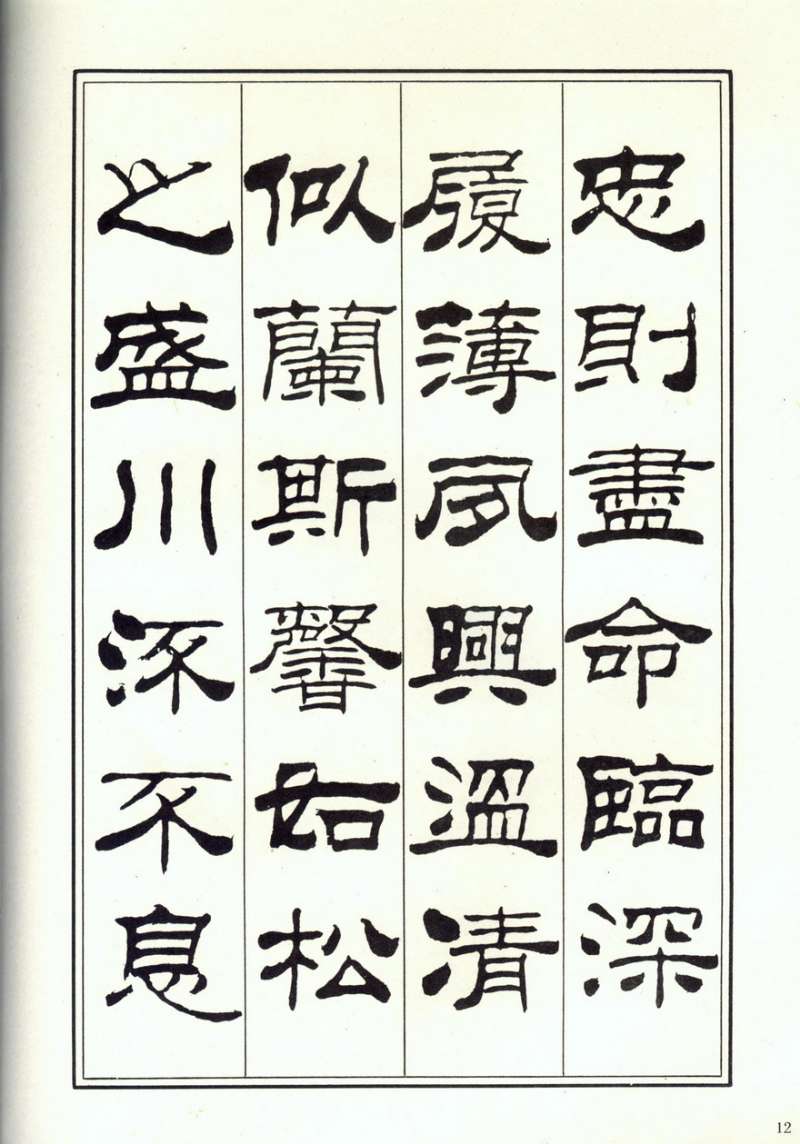 忠則盡命臨深
履薄夙興溫凊
似蘭斯馨如松
之盛川流不息
12